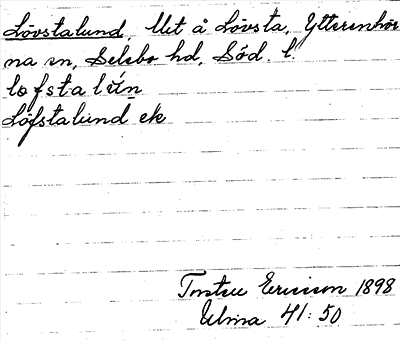 Lövstalund, Uet å Lövsta, Ytterenhör
na sn, Selebo hd, Söd. l.
lǫfstalún
Löfstalund ek
Torsten Ericsson 1898
Ulma 41:50